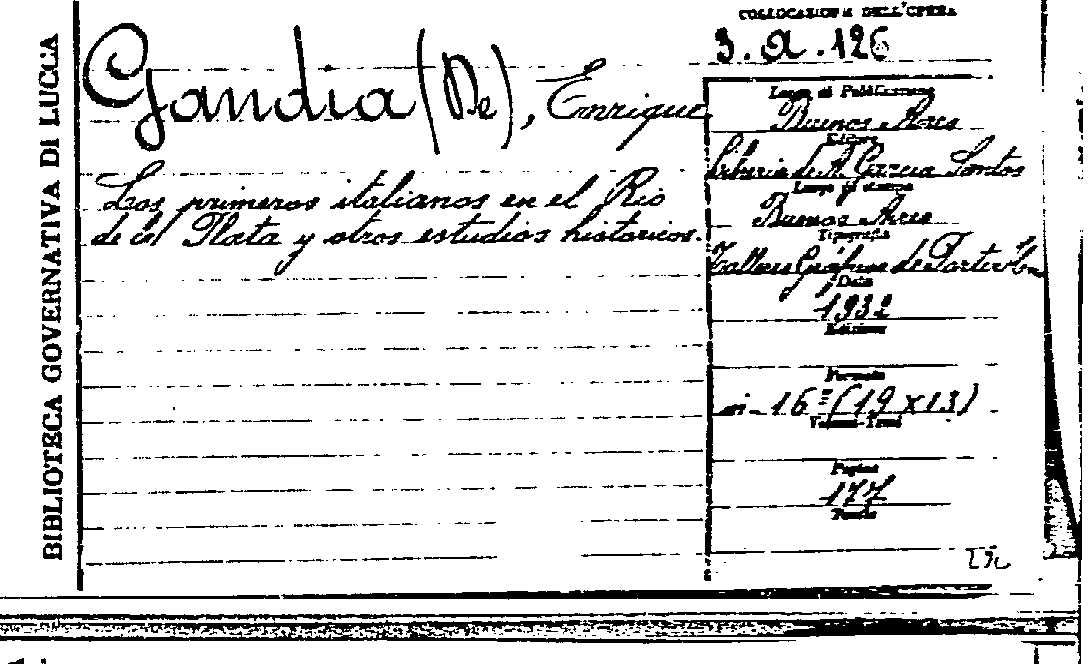 BIBLIOTECA GOVERNATIVA DI LUCCA
COLLOCAZIONE DELL'OPERA
3. a. 126
Gandia (De), Enrique
Los primeros italianos en el Rio
de el Plata y otros estudios historicos.
Luogo di Pubblicazione
Buenos Aires
Editore
Libreria de A. Garcia Santos
Luogo di stampa
Buenos Aires
Tipografia
Talleres Gráficos de Porter
Data
1932
Edizione
Formato
in-16° (19 x 13)
Volumi-Tomi
Pagine
177